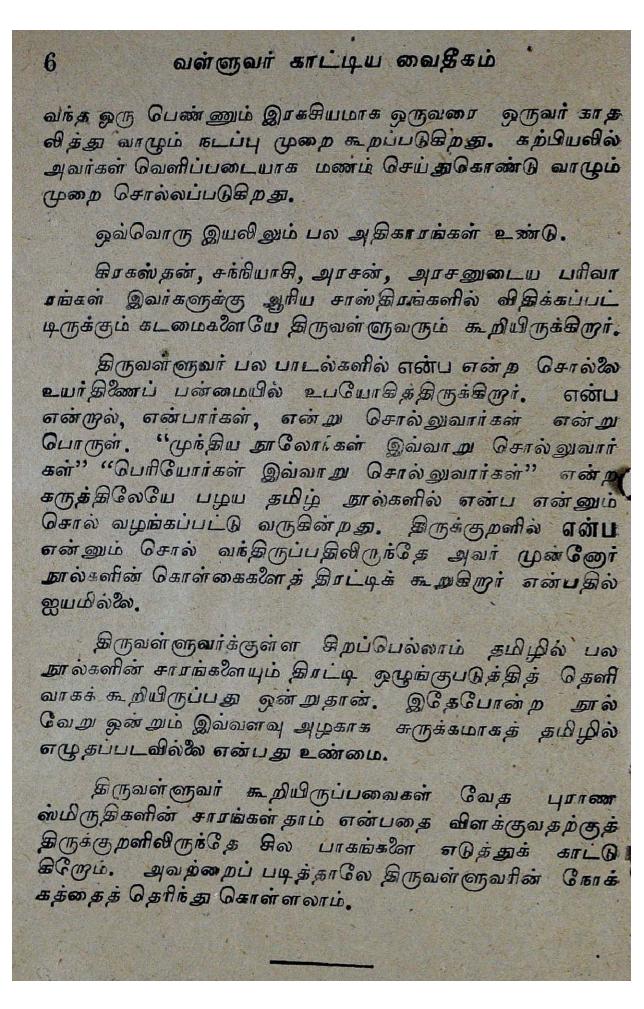 6 வள்ளுவர் காட்டிய வைதீகம்
வந்த ஒரு பெண்ணும் இரகசியமாக ஒருவரை ஒருவர் காத
லித்து வாழும் நடப்பு முறை கூறப்படுகிறது. கற்பியலில்
அவர்கள் வெளிப்படையாக மணம் செய்துகொண்டு வாழும்
முறை சொல்லப்படுகிறது.
ஒவ்வொரு இயலினும் பல அதிகாரங்கள் உண்டு.
கிரகஸ்தன், சந்நியாசி, அரசன், அரசனுடைய பரிவா
ரங்கள் இவர்களுக்கு ஆரிய சாஸ்திரங்களில் விதிக்கப்பட்
டிருக்கும் கடமைகளையே திருவள்ளுவரும் கூறியிருக்கிறார்.
திருவள்ளுவர் பல பாடல்களில் என்ப என்ற சொல்லை
உயர்திணைப் பன்மையில் உபயோகித்திருக்கிறார். என்ப
என்றால், என்பார்கள், என்று சொல்லுவார்கள் என்று
பொருள். “முந்திய நூலோர்கள் இவ்வாறு சொல்லுவார்
கள்” “பெரியோர்கள் இவ்வாறு சொல்லுவார்கள்” என்ற
கருத்திலேயே பழய தமிழ் நூல்களில் என்ப என்னும்
சொல் வழங்கப்பட்டு வருகின்றது. திருக்குறளில் என்ப
என்னும் சொல் வந்திருப்பதிலிருந்தே அவர் முன்னோர்
நூல்களின் கொள்கைகளைத் திரட்டிக் கூறுகிறார் என்பதில்
ஐயமில்லை.
திருவள்ளுவர்க்குள்ள சிறப்பெல்லாம் தமிழில் பல
நூல்களின் சாரங்களையும் திரட்டி ஒழுங்குபடுத்தித் தெளி
வாகக் கூறியிருப்பது ஒன்றுதான். இதேபோன்ற நூல்
வேறு ஒன்றும் இவ்வளவு அழகாக சுருக்கமாகத் தமிழில்
எழுதப்படவில்லை என்பது உண்மை.
திருவள்ளுவர் கூறியிருப்பவைகள் வேத புராண
ஸ்மிருதிகளின் சாரங்கள்தாம் என்பதை விளக்குவதற்குத்
திருக்குறளிலிருந்தே சில பாகங்களை எடுத்துக் காட்டு
கிறோம். அவற்றைப் படித்தாலே திருவள்ளுவரின் நோக்
கத்தைத் தெரிந்து கொள்ளலாம்.